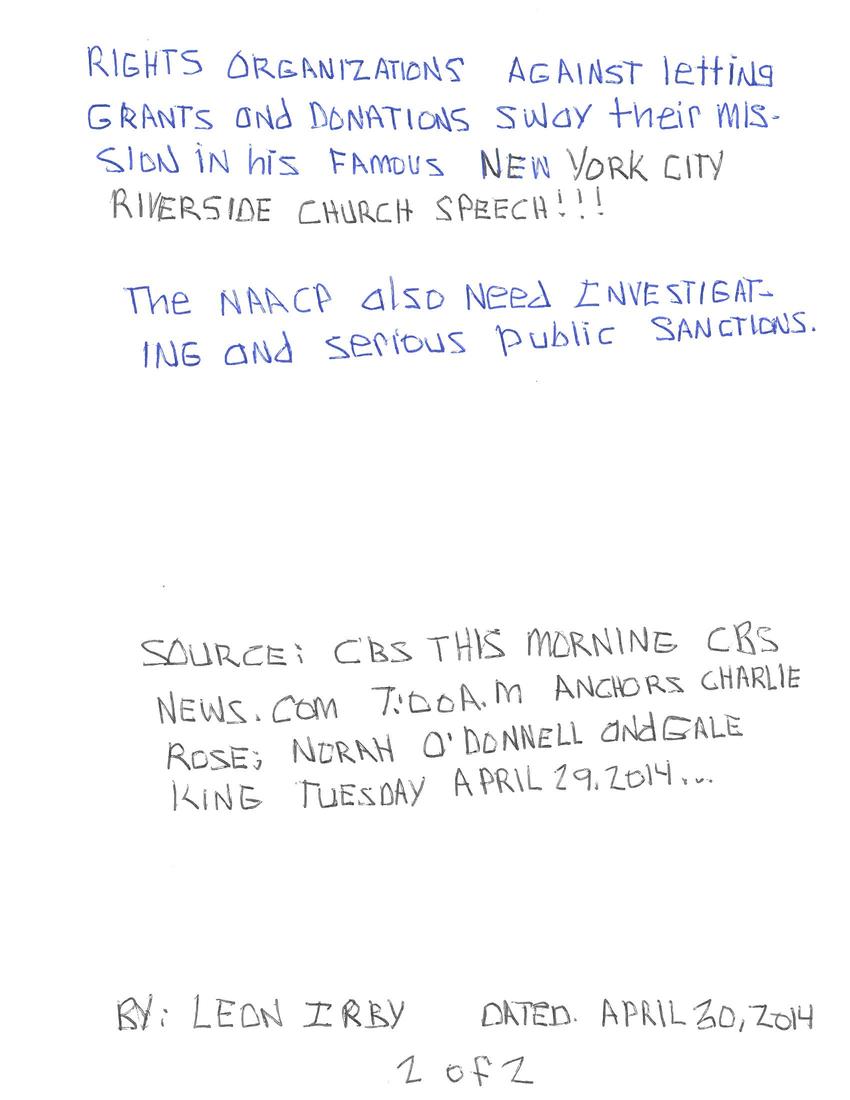 RIGHTS ORGANIZATIONS AGAINST letting
GRANTS and DONATIONS sway their MIS-
SION IN his FAMOUS NEW YORK CITY
RIVERSIDE CHURCH SPEECH!!!
The NAACP also Need INVESTIGAT-
ING and serious public SANCTIONS.
SOURCE: CBS THIS MORNING CBS
NEWS.COM 7:00A.M ANCHORS CHARLIE
ROSE; NORAH O'DONNELL and GALE
KING TUESDAY APRIL 29, 2014...
BY: LEON IRBY DATED. APRIL 30, 2014
2 of 2